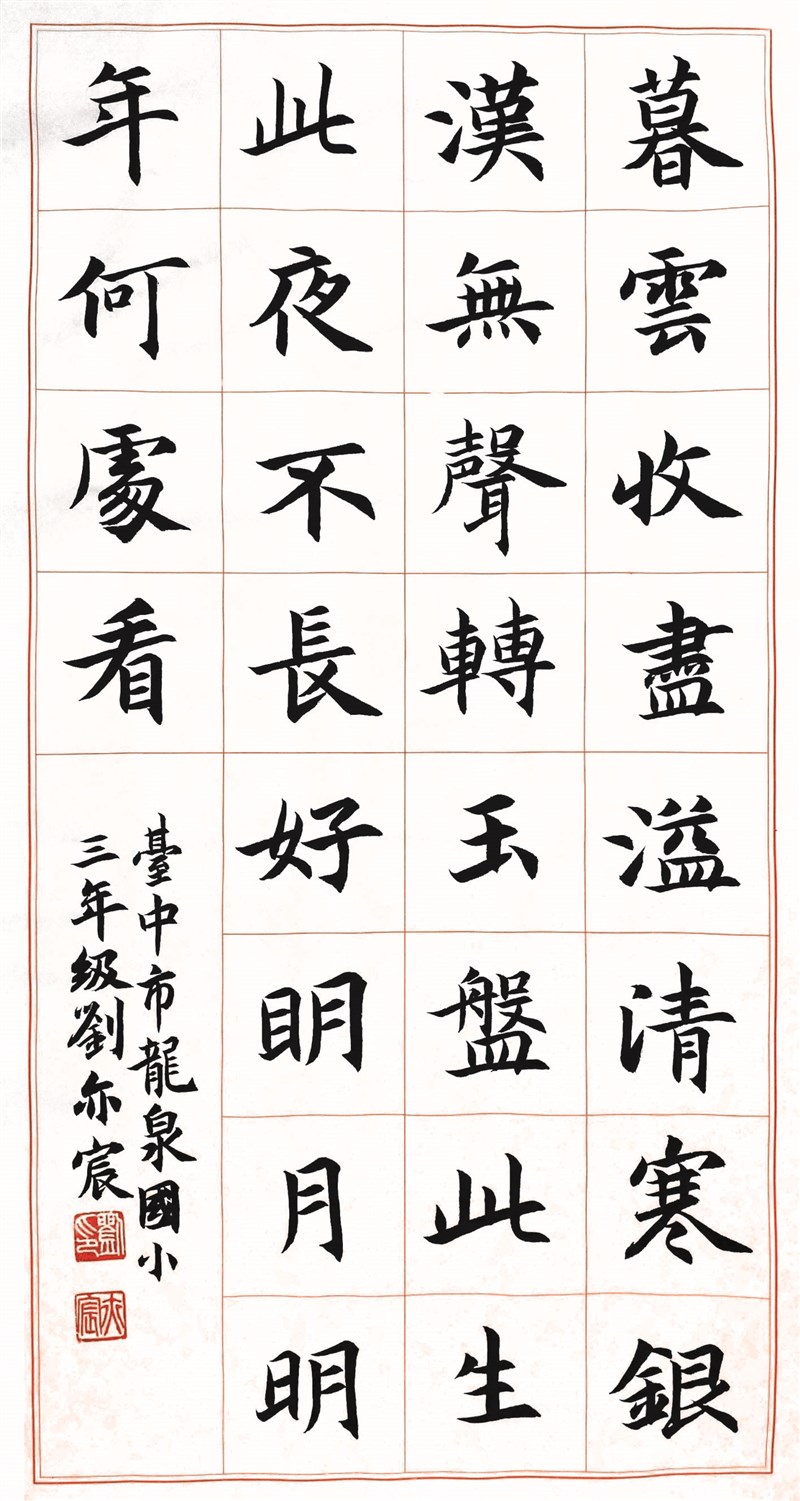 暮雲收盡溢清寒銀
漢無聲轉玉盤此生
此夜不長好明月明
年何處看
臺中市龍泉國小
三年級劉亦宸
劉印
亦宸